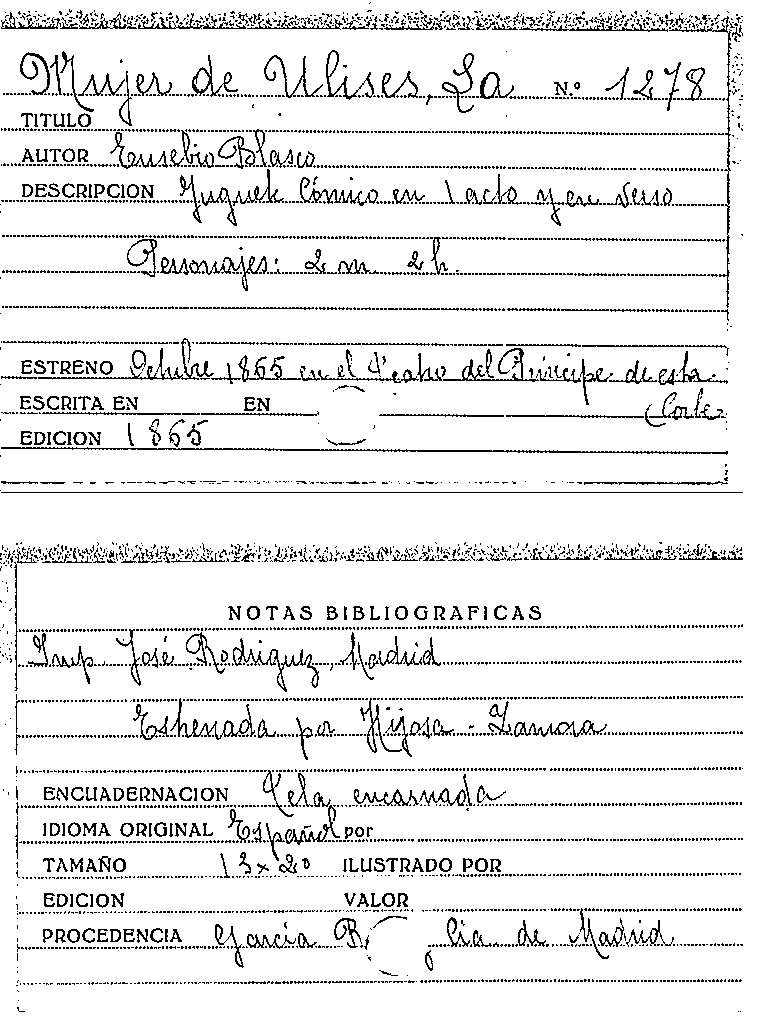 Mujer de Ulises, La Nº 1278
TITULO
AUTOR Eusebio Blasco
DESCRIPCION Juguete Cómico en 1 acto y en verso
Personajes: 2 m. 2 h.
ESTRENO Octubre 1865 en el Teatro del Principe de esta
ESCRITA EN EN Corte
EDICION 1865
NOTAS BIBLIOGRAFICAS
Imp José Rodriguez, Madrid
Estrenada por Hijosa - Zamora
ENCUADERNACION Tela encarnada
IDIOMA ORIGINAL Español por
TAMAÑO 13 x 20 ILUSTRADO POR
EDICION VALOR
PROCEDENCIA García R. de Madrid